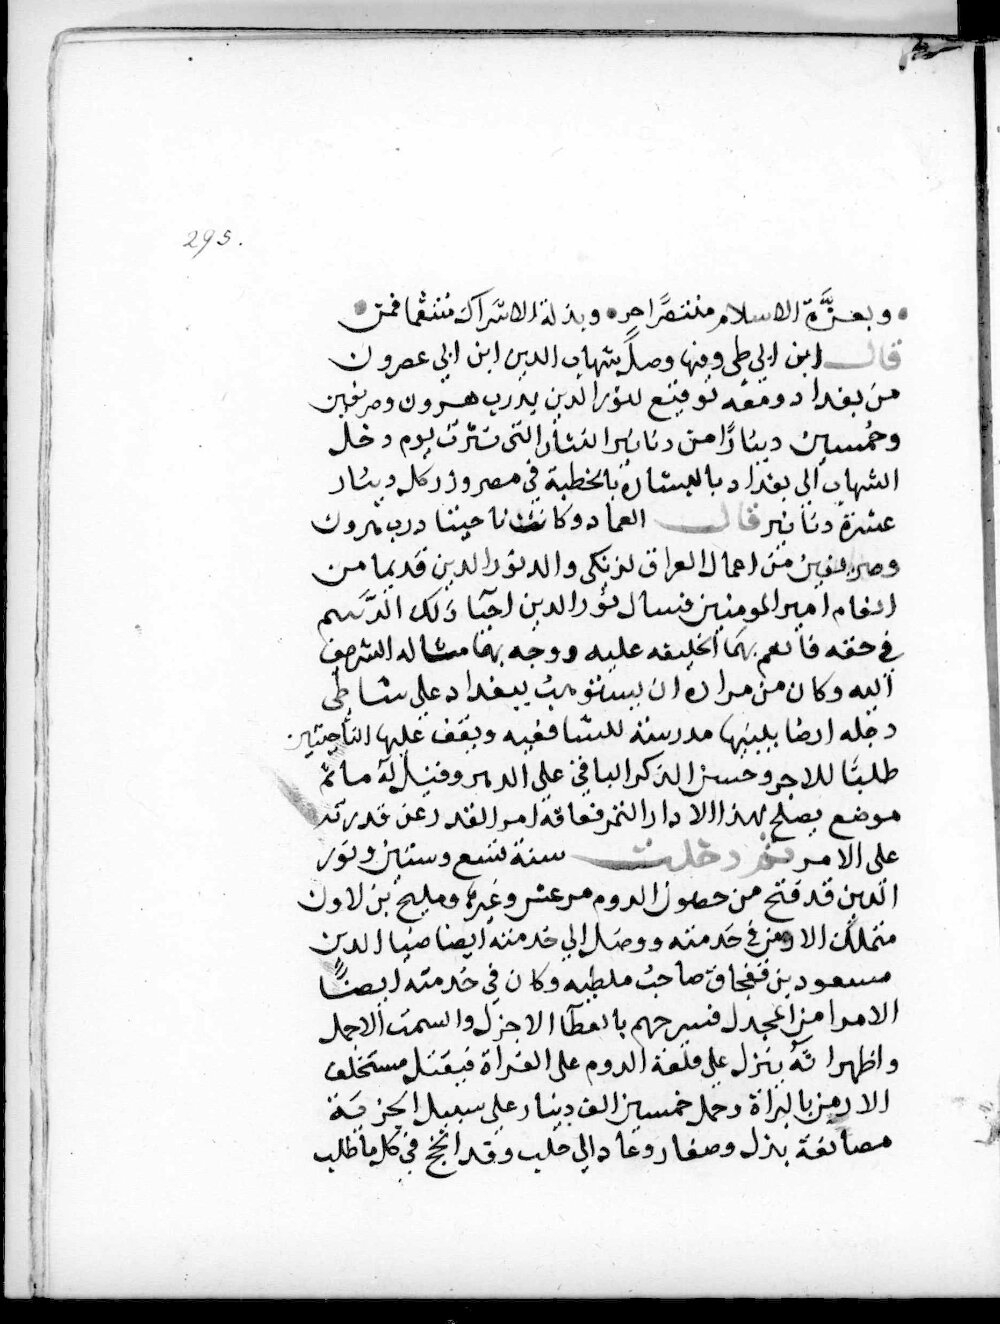 295.
وبعزّة الاسلام منتصرًا حر وبذلة الاشراك منتقما فمن
قال ابن ابي طي وفيها وصل شهاب الدين ابن ابي عصرون
من بغداد ومعه توقيع لنور الدين بدرب هرون وصريفين
وخمسين دينارًا من دنانير النثار التي نثرت يوم دخل
الشهاب الى بغداد بالبشارة بالخطبة في مصر وزر كل دينار
عشرة دنانير قال العماد وكانت ناحيتا درب هرون
وصريفين من اعمال العراق لزنكي والد نور الدين قديما من
انعام امير المومنين فسال نور الدين احيا ذلك الرسم
في حقه فانعم بهما الخليفه عليه ووجه بهما مثاله الشريف
اليه وكان من مراده ان يستوهب ببغداد على شاطي
دجله ارضا يبنيها مدرسة للشافعيه ويقف عليها الناحيتين
طلبًا للاجر وحسن الذكر الباقي على الدهر وقيل له ما ثم
موضع يصلح لهذا الا دار التمر فعاقه امر القدر عن قدرته
على الامر ثم دخلت سنة تسع وستين ونور
الدين قد فتح من حصون الروم مرعش وغيرها ومليح بن لاون
متملك الارمن في خدمته ووصل الي خدمته ايضا ضيا الدين
مسعود بن قفجاق صاحب ملطيه وكان في خدمته ايضًا
الامرا من المجدل فسرحهم بالعطآ الاجزل والسمت الاجمل
واظهر انه ينزل على قلعة الروم على الفراة فبقتل مستخلف
الارمن بالبراة وحمل خمسين الف دينار على سبيل الجزية
مصانعة بذل وصغار وعاد الي حلب وقد انجح في كل ما طلب